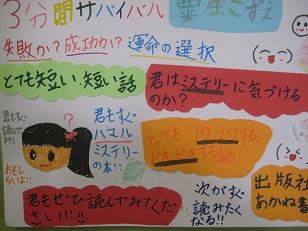 3分間サバイバル
粟生こずえ
失敗か?成功か?運命の選択
とても短い短い話
君はミステリーに気づける
のか?
君もすぐ
読んで
みて
おもし
ろいよ!!
?
君もすぐ
ハマル
ミステリー
の本!!
とても、ゾクゾクする、
ドキドキする話!!
君もぜひ読んでみてくだ
さい!!
次がすぐ
読みたく
なる!!
出版社
あかね書